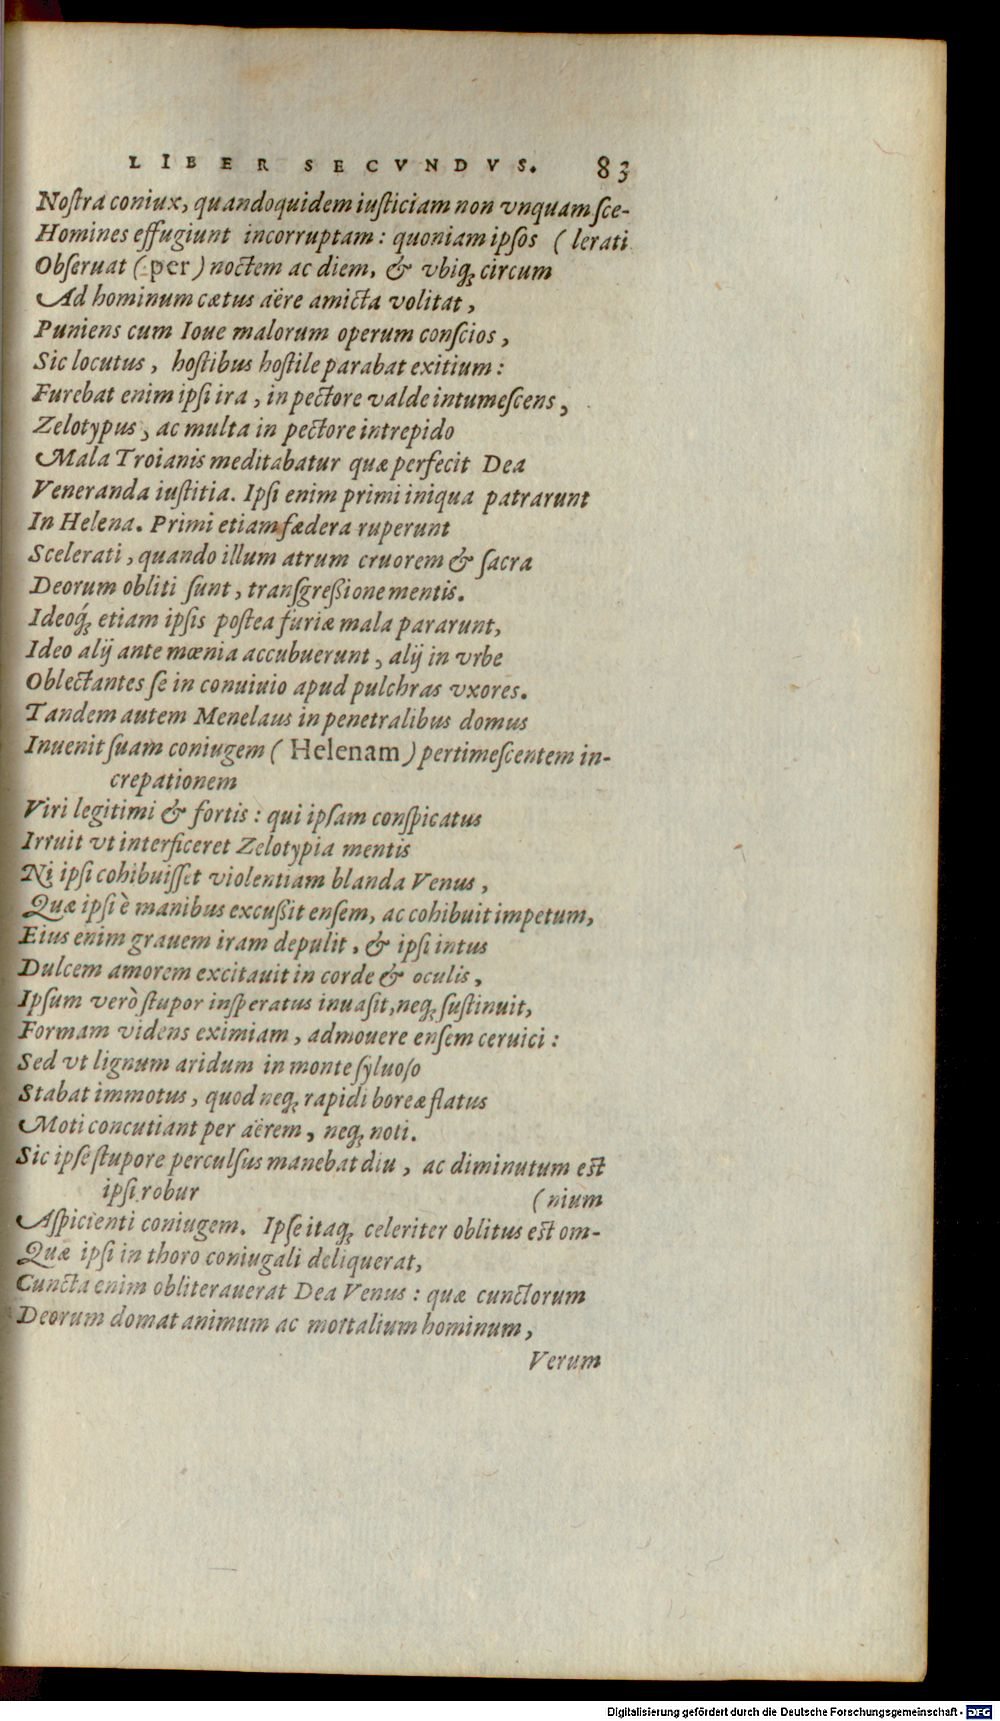 LIBER SECVNDVS. 83
Noſtra coniux, quandoquidem iuſticiam non vnquam ſce-
Homines effugiunt incorruptam: quoniam ipſos (lerati
Obſeruat (per) noctem ac diem, & vbiq; circum
Ad hominum cætus aëre amicta volitat,
Puniens cum Ioue malorum operum conſcios,
Sic locutus, hoſtibus hoſtile parabat exitium:
Furebat enim ipſi ira, in pectore valde intumeſcens,
Zelotypus, ac multa in pectore intrepido
Mala Troianis meditabatur quæ perfecit Dea
Veneranda iuſtitia. Ipſi enim primi iniqua patrarunt
In Helena. Primi etiam fædera ruperunt
Scelerati, quando illum atrum cruorem & ſacra
Deorum obliti ſunt, tranſgreßione mentis.
Ideoq́; etiam ipſis poſtea furiæ mala pararunt,
Ideo alij ante mœnia accubuerunt, alij in vrbe
Oblectantes ſe in conuiuio apud pulchras vxores.
Tandem autem Menelaus in penetralibus domus
Inuenit ſuam coniugem (Helenam) pertimeſcentem in-
crepationem
Viri legitimi & fortis: qui ipſam conſpicatus
Irruit vt interficeret Zelotypia mentis
Ni ipſi cohibuiſſet violentiam blanda Venus,
Quæ ipſi è manibus excußit enſem, ac cohibuit impetum,
Eius enim grauem iram depulit, & ipſi intus
Dulcem amorem excitauit in corde & oculis,
Ipſum verò ſtupor inſperatus inuaſit, neq; ſuſtinuit,
Formam videns eximiam, admouere enſem ceruici:
Sed vt lignum aridum in monte ſyluoſo
Stabat immotus, quod neq; rapidi boreæ flatus
Moti concutiant per aërem, neq; noti.
Sic ipſe ſtupore perculſus manebat diu, ac diminutum eſt
ipſi robur (nium
Aſpicienti coniugem. Ipſe itaq; celeriter oblitus eſt om-
Quæ ipſi in thoro coniugali deliquerat,
Cuncta enim obliterauerat Dea Venus: quæ cunctorum
Deorum domat animum ac mortalium hominum,
Verum
Digitalisierung gefördert durch die Deutsche Forschungsgemeinschaft - DFG